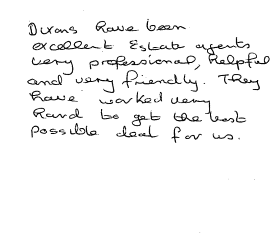 Dixons have been
excellent Estate agents
very professional, helpful
and very friendly. They
have worked very
hard to get the best
possible deal for us.